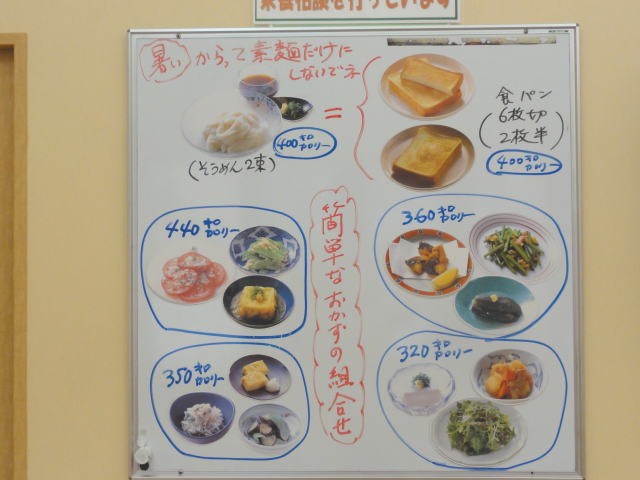 栄養相談を行っています
暑いからって素麺だけに
しないでネ
=
400キロカロリー
(そうめん2束)
食パン
(6枚切
2枚半)
400キロカロリー
簡単なおかずの組合せ
440キロカロリー
360キロカロリー
350キロカロリー
320キロカロリー